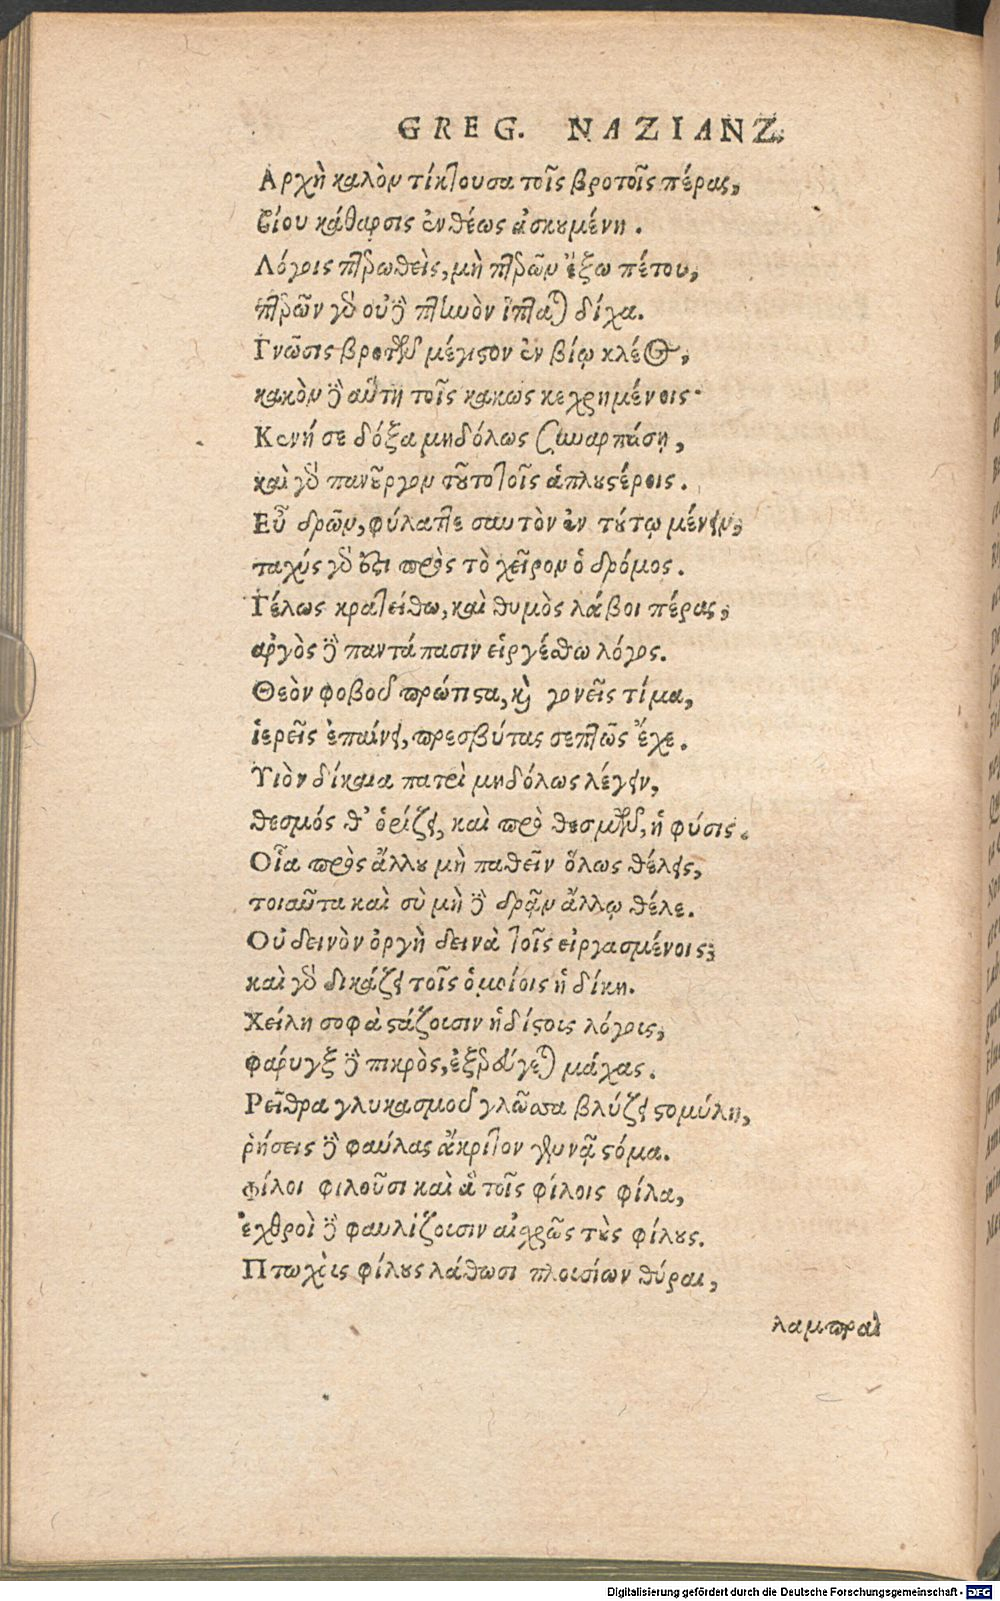 GREG. NAZIANZ.
Ἀρχὴ καλὸν τίκτουσα τοῖς βροτοῖς πέρας,
βίου κάθαρσις ἐνθέως ἀσκουμένη.
Λόγοις πτερωθεὶς, μὴ πτερῶν ἔξω πέτου,
πτερῶν γὰρ οὐδὲ πτηνὸν ἵπταται δίχα.
Γνῶσις βροτῶν μέγιστον ἐν βίῳ κλέος,
κακὸν δὲ αὕτη τοῖς κακῶς κεχρημένοις·
Κενή σε δόξα μηδόλως συναρπάσῃ,
καὶ γὰρ πανοῦργον τοῦτο τοῖς ἁπλουστέροις.
Εὖ δρῶν, φύλαττε σαυτὸν ἐν τούτῳ μένειν,
ταχύς γὰρ ὅτι πρὸς τὸ χεῖρον ὁ δρόμος.
Γέλως κρατείσθω, καὶ θυμὸς λάβοι πέρας,
αργὸς δὲ παντάπασιν εἰργέσθω λόγος.
Θεὸν φοβοῦ πρώτιστα, καὶ γονεῖς τίμα,
ἱερεῖς ἐπαίνει, πρεσβύτας σεπτῶς ἔχε.
Υιὸν δίκαια πατρὶ μηδόλως λέγειν,
θεσμός θ' ὁρίζει, καὶ πρὸ θεσμῶν, ἡ φύσις.
Οἷα πρὸς ἄλλου μὴ παθεῖν ὅλως θέλεις,
τοιαῦτα καὶ σὺ μὴ δὲ δρᾷν ἄλλῳ θέλε.
Οὐ δεινὸν ὀργὴ δεινὰ τοῖς εἰργασμένοις;
καὶ γὰρ δικάζει τοῖς ὁμοίοις ἡ δίκη.
Χείλη σοφὰ στάζοισιν ἡδίστοις λόγοις,
φάρυγξ δὲ πικρὸς, ἐξερεύγεται μάχας.
Ρεῖθρα γλυκασμοῦ γλῶσσα βλύζει στομύλη,
ῥήσεις δὲ φαύλας ἄκριτον γεννᾷ στόμα.
Φίλοι φιλοῦσι καὶ ἃ τοῖς φίλοις φίλα,
ἐχθροὶ δὲ φαυλίζοισιν αἰσχρῶς τοὺς φίλους.
Πτωχὲς φίλους λάθωσι πλοισίων θύραι,
λαμπραὶ
Digitalisierung gefördert durch die Deutsche Forschungsgemeinschaft - DFG